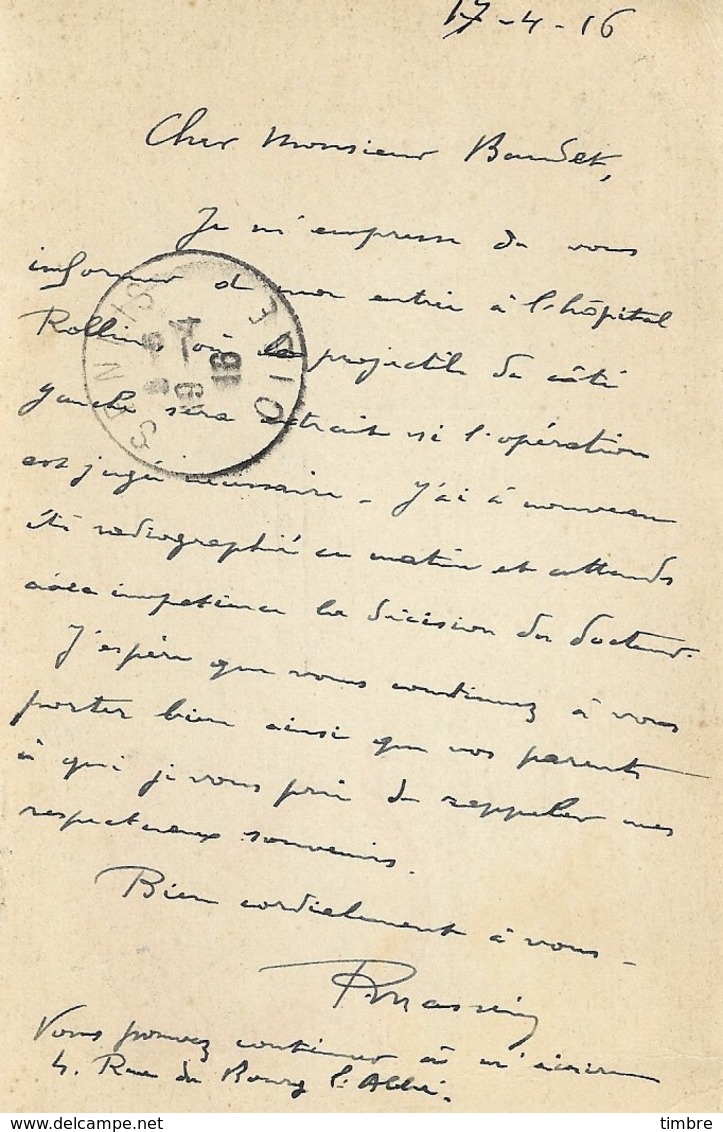 17-4-16
Cher Monsieur Baudet,
Je m'empresse de vous
informer de mon entrée à l'hôpital
Rollin où le projectile du côté
gauche sera extrait si l'opération
est jugée nécessaire - J'ai à nouveau
été radiographié ce matin et attends
avec impatience la décision du docteur.
J'espère que vous continuez à vous
porter bien ainsi que vos parents
à qui je vous prie de rappeler mes
respectueux souvenirs.
Bien cordialement à vous -
Vous pouvez continuer à m'écrire
4. Rue du Bourg l'Abbé.
SENLIS
OISE
19 -4
16
delcampe.net
timbre